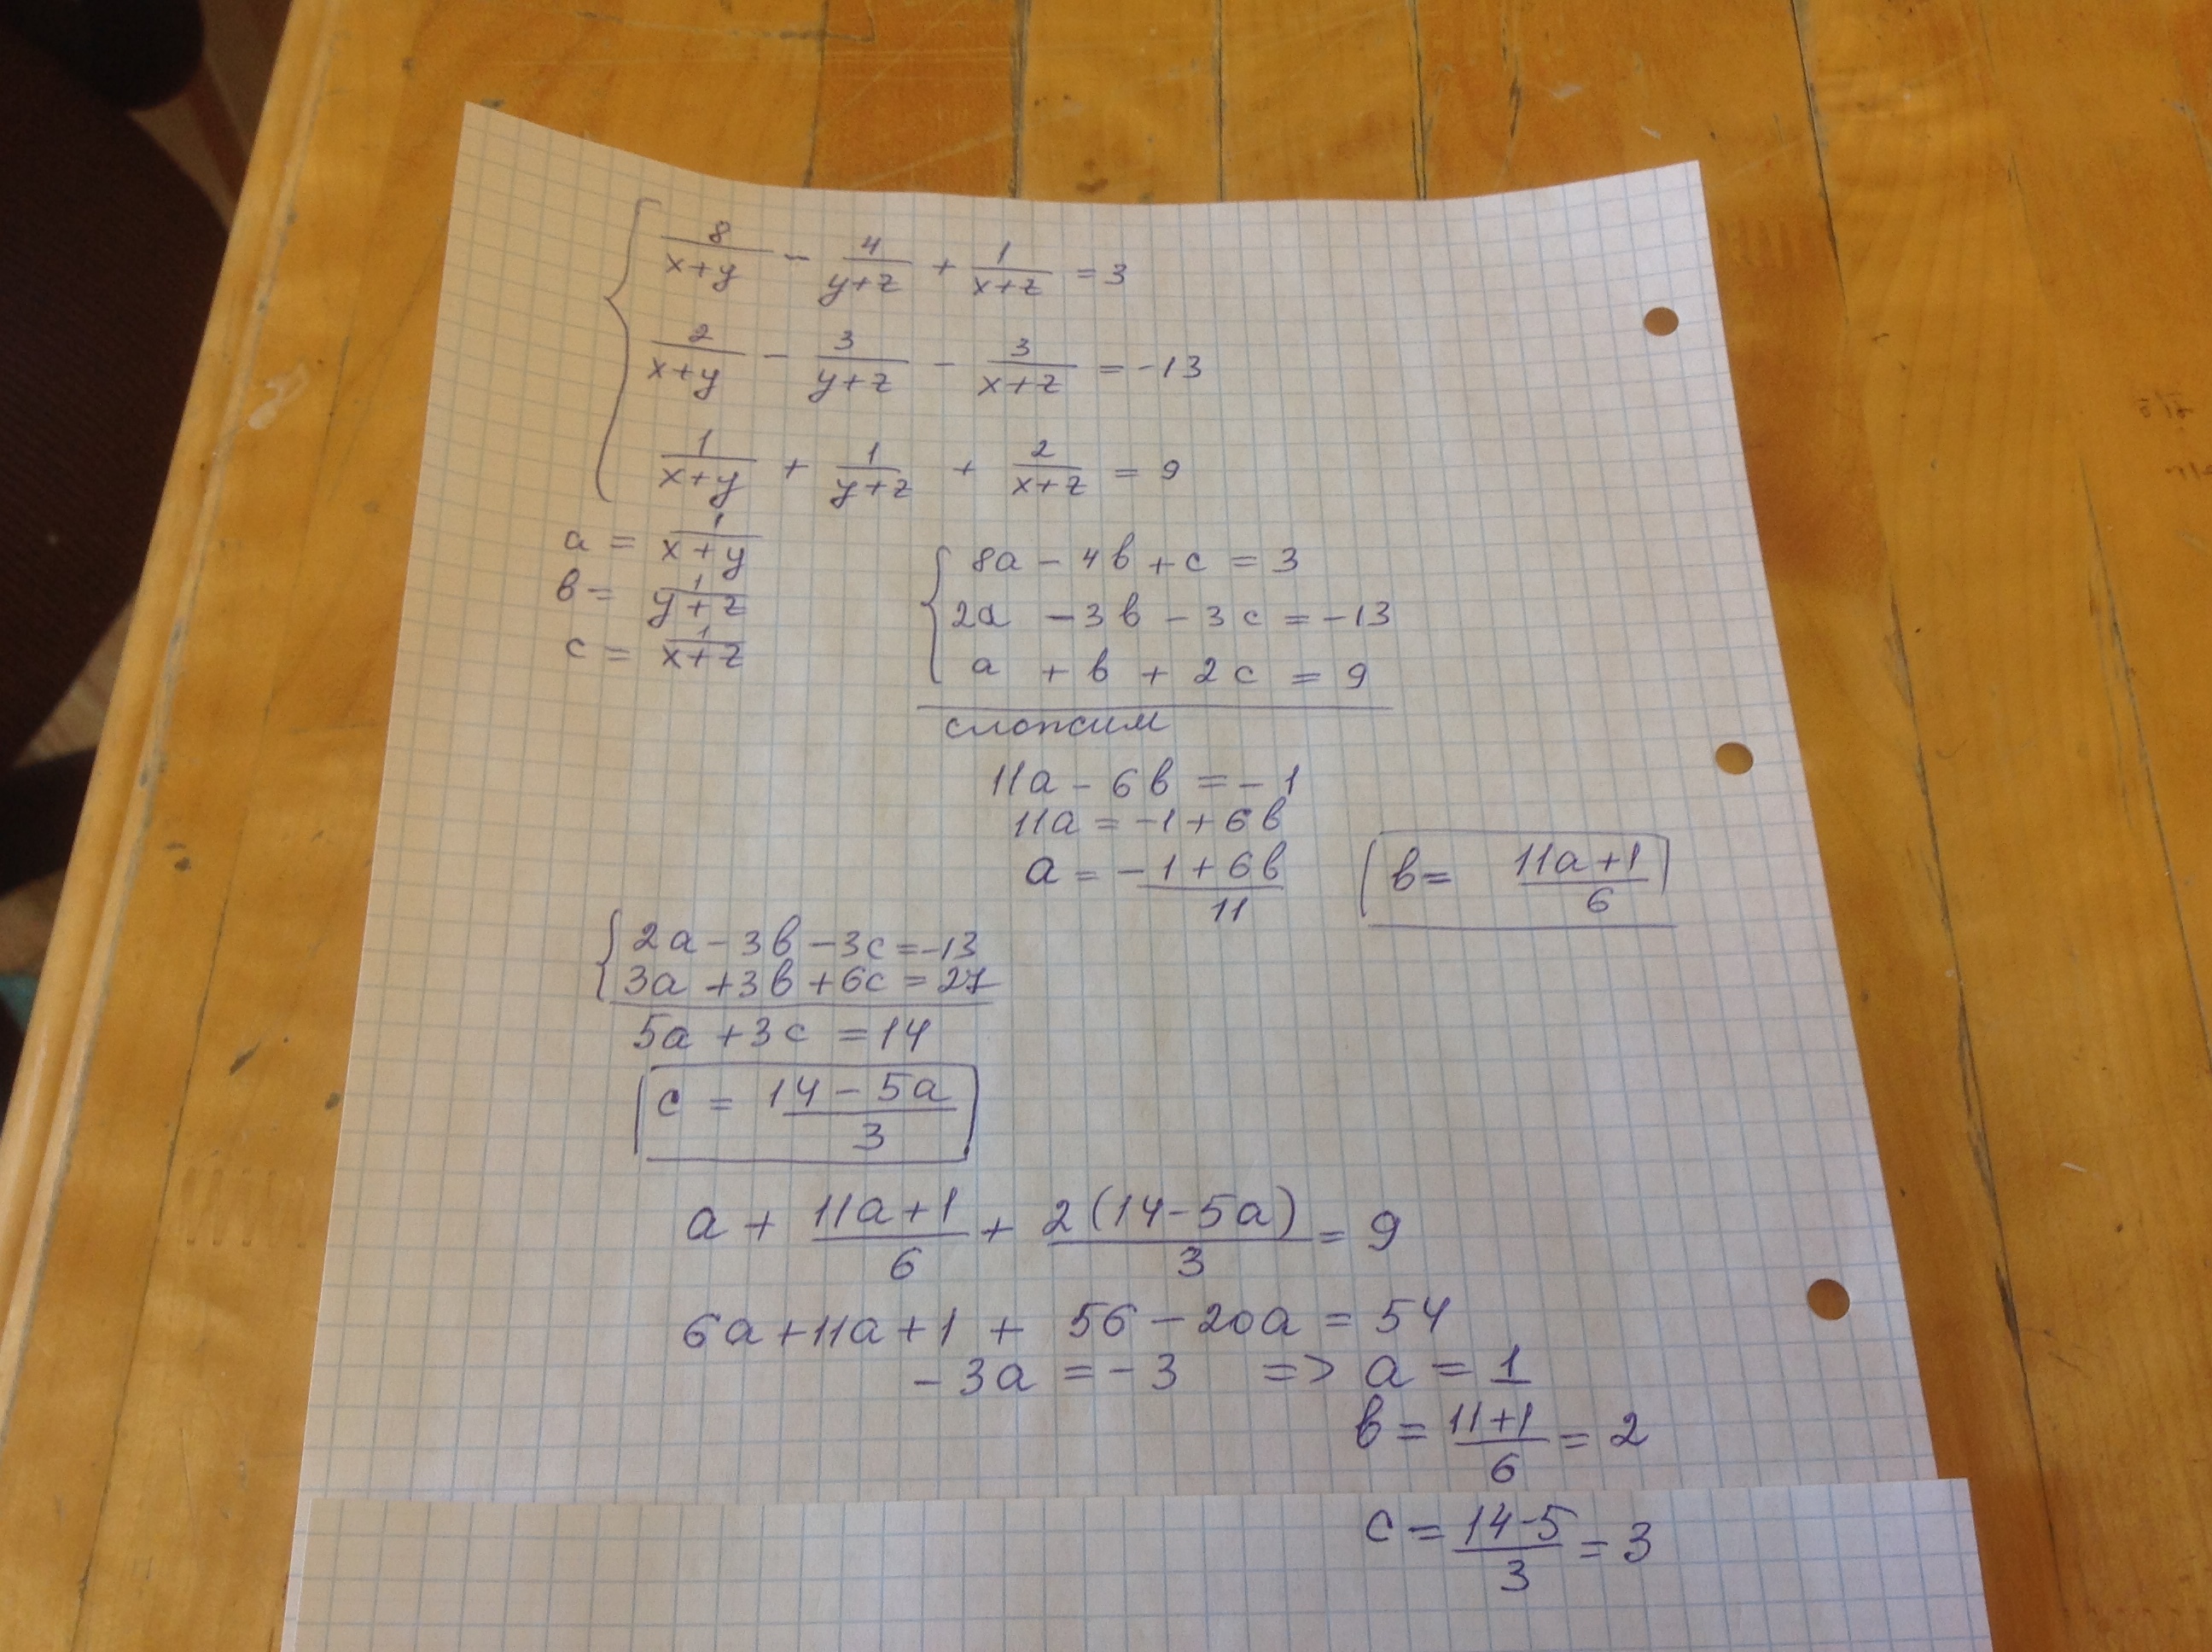 8/(x+y) - 4/(y+z) + 1/(x+z) = 3
2/(x+y) - 3/(y+z) - 3/(x+z) = -13
1/(x+y) + 1/(y+z) + 2/(x+z) = 9
a = 1/(x+y)
в = 1/(y+z)
c = 1/(x+z)
8a - 4в + c = 3
2a - 3в - 3c = -13
a + в + 2c = 9
сложим
11a - 6в = -1
11a = -1 + 6в
a = (-1 + 6в)/11
в = (11a+1)/6
2a - 3в - 3c = -13
3a + 3в + 6c = 27
5a + 3c = 14
c = (14 - 5a)/3
a + (11a+1)/6 + 2(14-5a)/3 = 9
6a + 11a + 1 + 56 - 20a = 54
-3a = -3 => a = 1
в = (11+1)/6 = 2
c = (14-5)/3 = 3